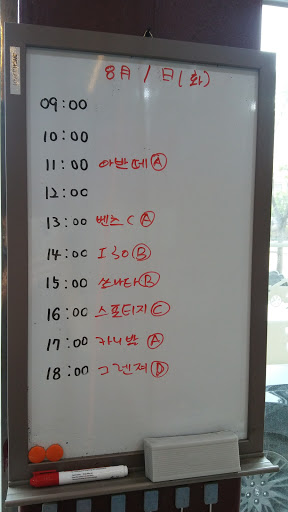 8月 1日(화)
09:00
10:00
11:00 아반떼 Ⓐ
12:00
13:00 벤츠C Ⓐ
14:00 I30 Ⓑ
15:00 쏘나타 Ⓑ
16:00 스포티지 Ⓒ
17:00 카니발 Ⓐ
18:00 그렌져 Ⓓ